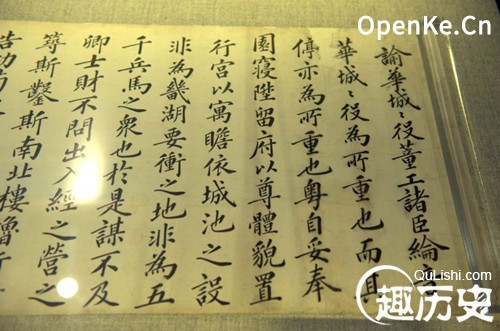 OpenKe.Cn
諭華城〻役董工諸臣綸
華城〻役為所重也而
停亦為所重也粤自妥奉
園寢陞留府以尊體貌置
行宮以寓瞻依城池之設
非為畿湖要衝之地非為五
千兵馬之衆也於是謀不及
卿士財不問出入經之營之
斯鑿斯南北樓櫓
告功南
QuLiShi.com
趣历史